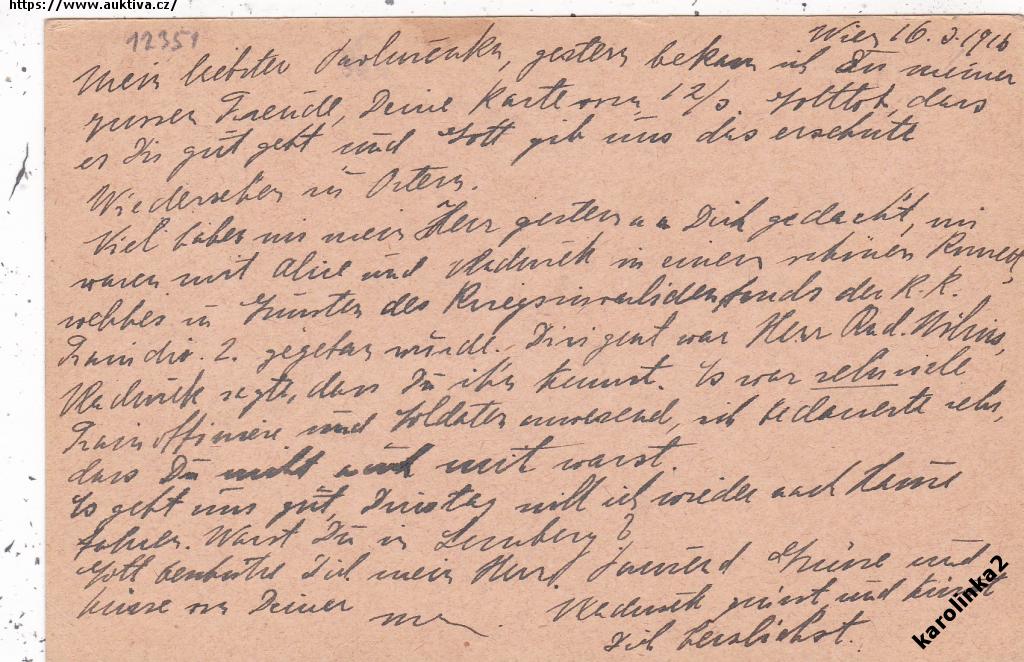 https://www.auktiva.cz/
12351
Wien 16.3.1916
Mein liebster, gestern bekam ich zu meiner
Freude, Deine Karte vom 12/3. Gottlob, dass
es Dir gut geht und Gott gib uns das ersehnte
Wiedersehen in Ostern.
Viel haben wir mein Herz gestern an Dich gedacht, wir
waren mit Alice und in einem schönen Konzert,
welches zu Gunsten des Kriegsinvalidenfonds der K.K.
Traindiv. 2. gegeben wurde. Dirigent war Herr Rud. Nilius,
sagte, dass Du ihn kennst. Es war sehr viele
Trainoffiziere und Soldaten anwesend, ich bedauerte sehr,
dass Du nicht auch mit warst.
Es geht uns gut, Dinstag will ich wieder nach Hause
fahren. Warst Du in Lemberg?
Gott behüte Dich mein Herz! Tausend Grüsse und
Küsse von Deiner
grüsst und küsst
Dich herzlichst.
karolinka2